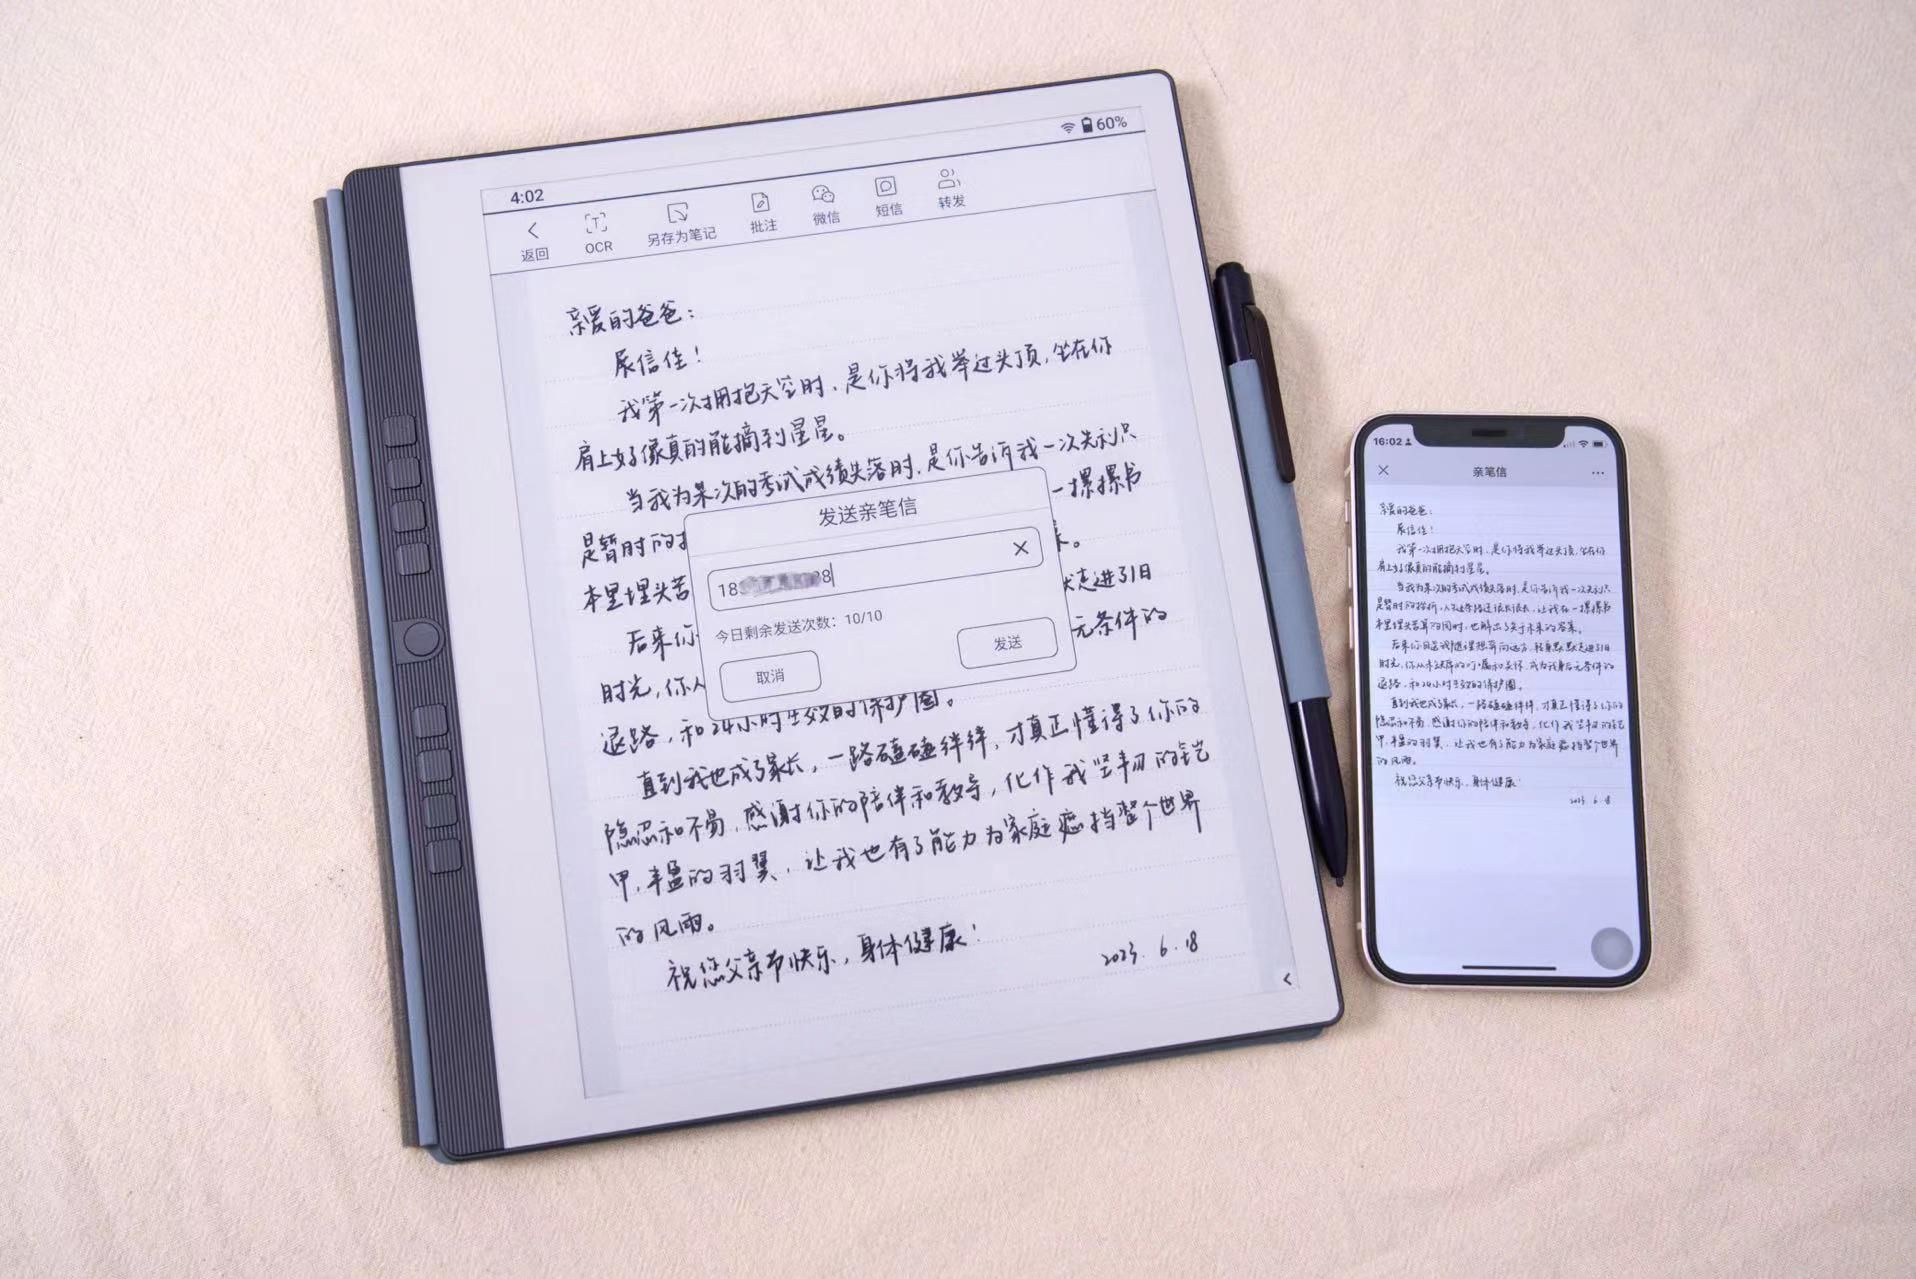 4:02
60%
返回
OCR
另存为笔记
批注
微信
短信
转发
亲爱的爸爸：
展信佳！
我第一次拥抱天空时，是你将我举过头顶，坐在你
肩上好像真的能摘到星星。
当我为某次的考试成绩失落时，是你告诉我一次失利只
是暂时的
一摞摞书
本里埋头苦
来。
后来你
默走进了旧
时光，你从
无条件的
退路，和24小时生效的保护圈。
直到我也成了家长，一路磕磕绊绊，才真正懂得了你的
隐忍和不易，感谢你的陪伴和教导，化作我坚韧的铠
甲，丰盈的羽翼，让我也有了能力为家庭遮挡整个世界
的风雨。
祝您父亲节快乐，身体健康！
2023.6.18
发送亲笔信
18
8
今日剩余发送次数：10/10
取消
发送
16:02
亲笔信
亲爱的爸爸：
展信佳！
我第一次拥抱天空时，是你将我举过头顶，坐在你
肩上好像真的能摘到星星。
当我为某次的考试成绩失落时，是你告诉我一次失利只
是暂时的挫折，人生道路还很长很长，让我在一摞摞书
本里埋头苦算的同时，也解出了关于未来的答案。
后来你目送我随理想奔向远方，转身默默走进了旧
时光，你从未缺席的叮嘱和关怀，成为我身后无条件的
退路，和24小时生效的保护圈。
直到我也成了家长，一路磕磕绊绊，才真正懂得了你的
隐忍和不易，感谢你的陪伴和教导，化作我坚韧的铠
甲，丰盈的羽翼，让我也有了能力为家庭遮挡整个世界
的风雨。
祝您父亲节快乐，身体健康！
2023.6.18